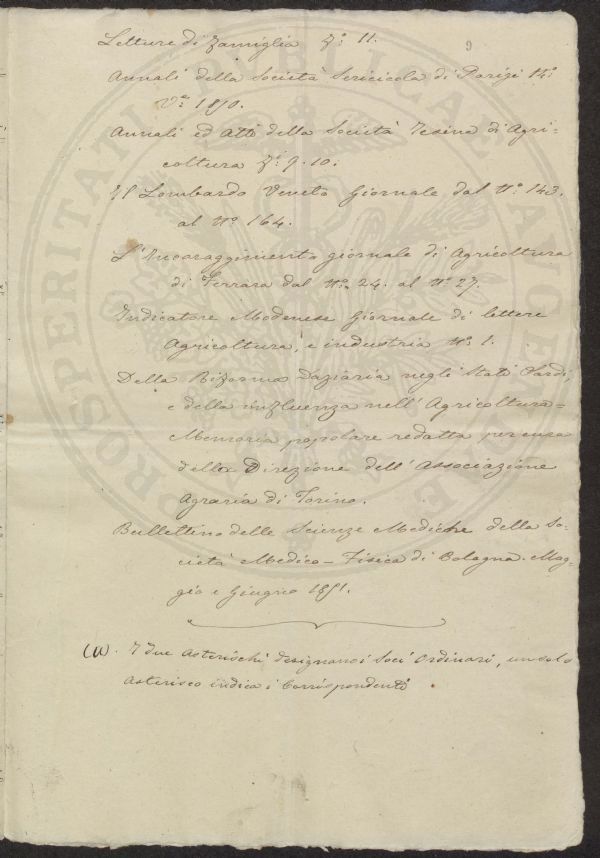 9
Letture di Famiglia F.° 11.
Annali della Società Sericicola di Parigi 14.°
V.e 1850.
Annali ed Atti della Società Tesina di Agri-
coltura F.° 9. 10.
Il Lombardo Veneto Giornale dal N.° 143.
al N.° 164.
L'Incoraggimento giornale di Agricoltura
di Ferrara dal N.° 24. al N.° 27.
Indicatore Modenese Giornale di lettere
Agricoltura, e industria N.° 1.
Della Riforma Daziaria negli Stati Sardi,
e della influenza nell'Agricoltura =
Memoria popolare redatta per cura
della Direzione dell'Associazione
Agraria di Torino.
Bullettino delle Scienze Mediche della So-
cietà Medico - Fisica di Bologna. Mag-
gio e Giugno 1851.
(a). I due Asterischi designano i Soci Ordinari, un solo
Asterisco indica i Corrispondenti
PROSPERITATI PUBLICAE AUGENDAE